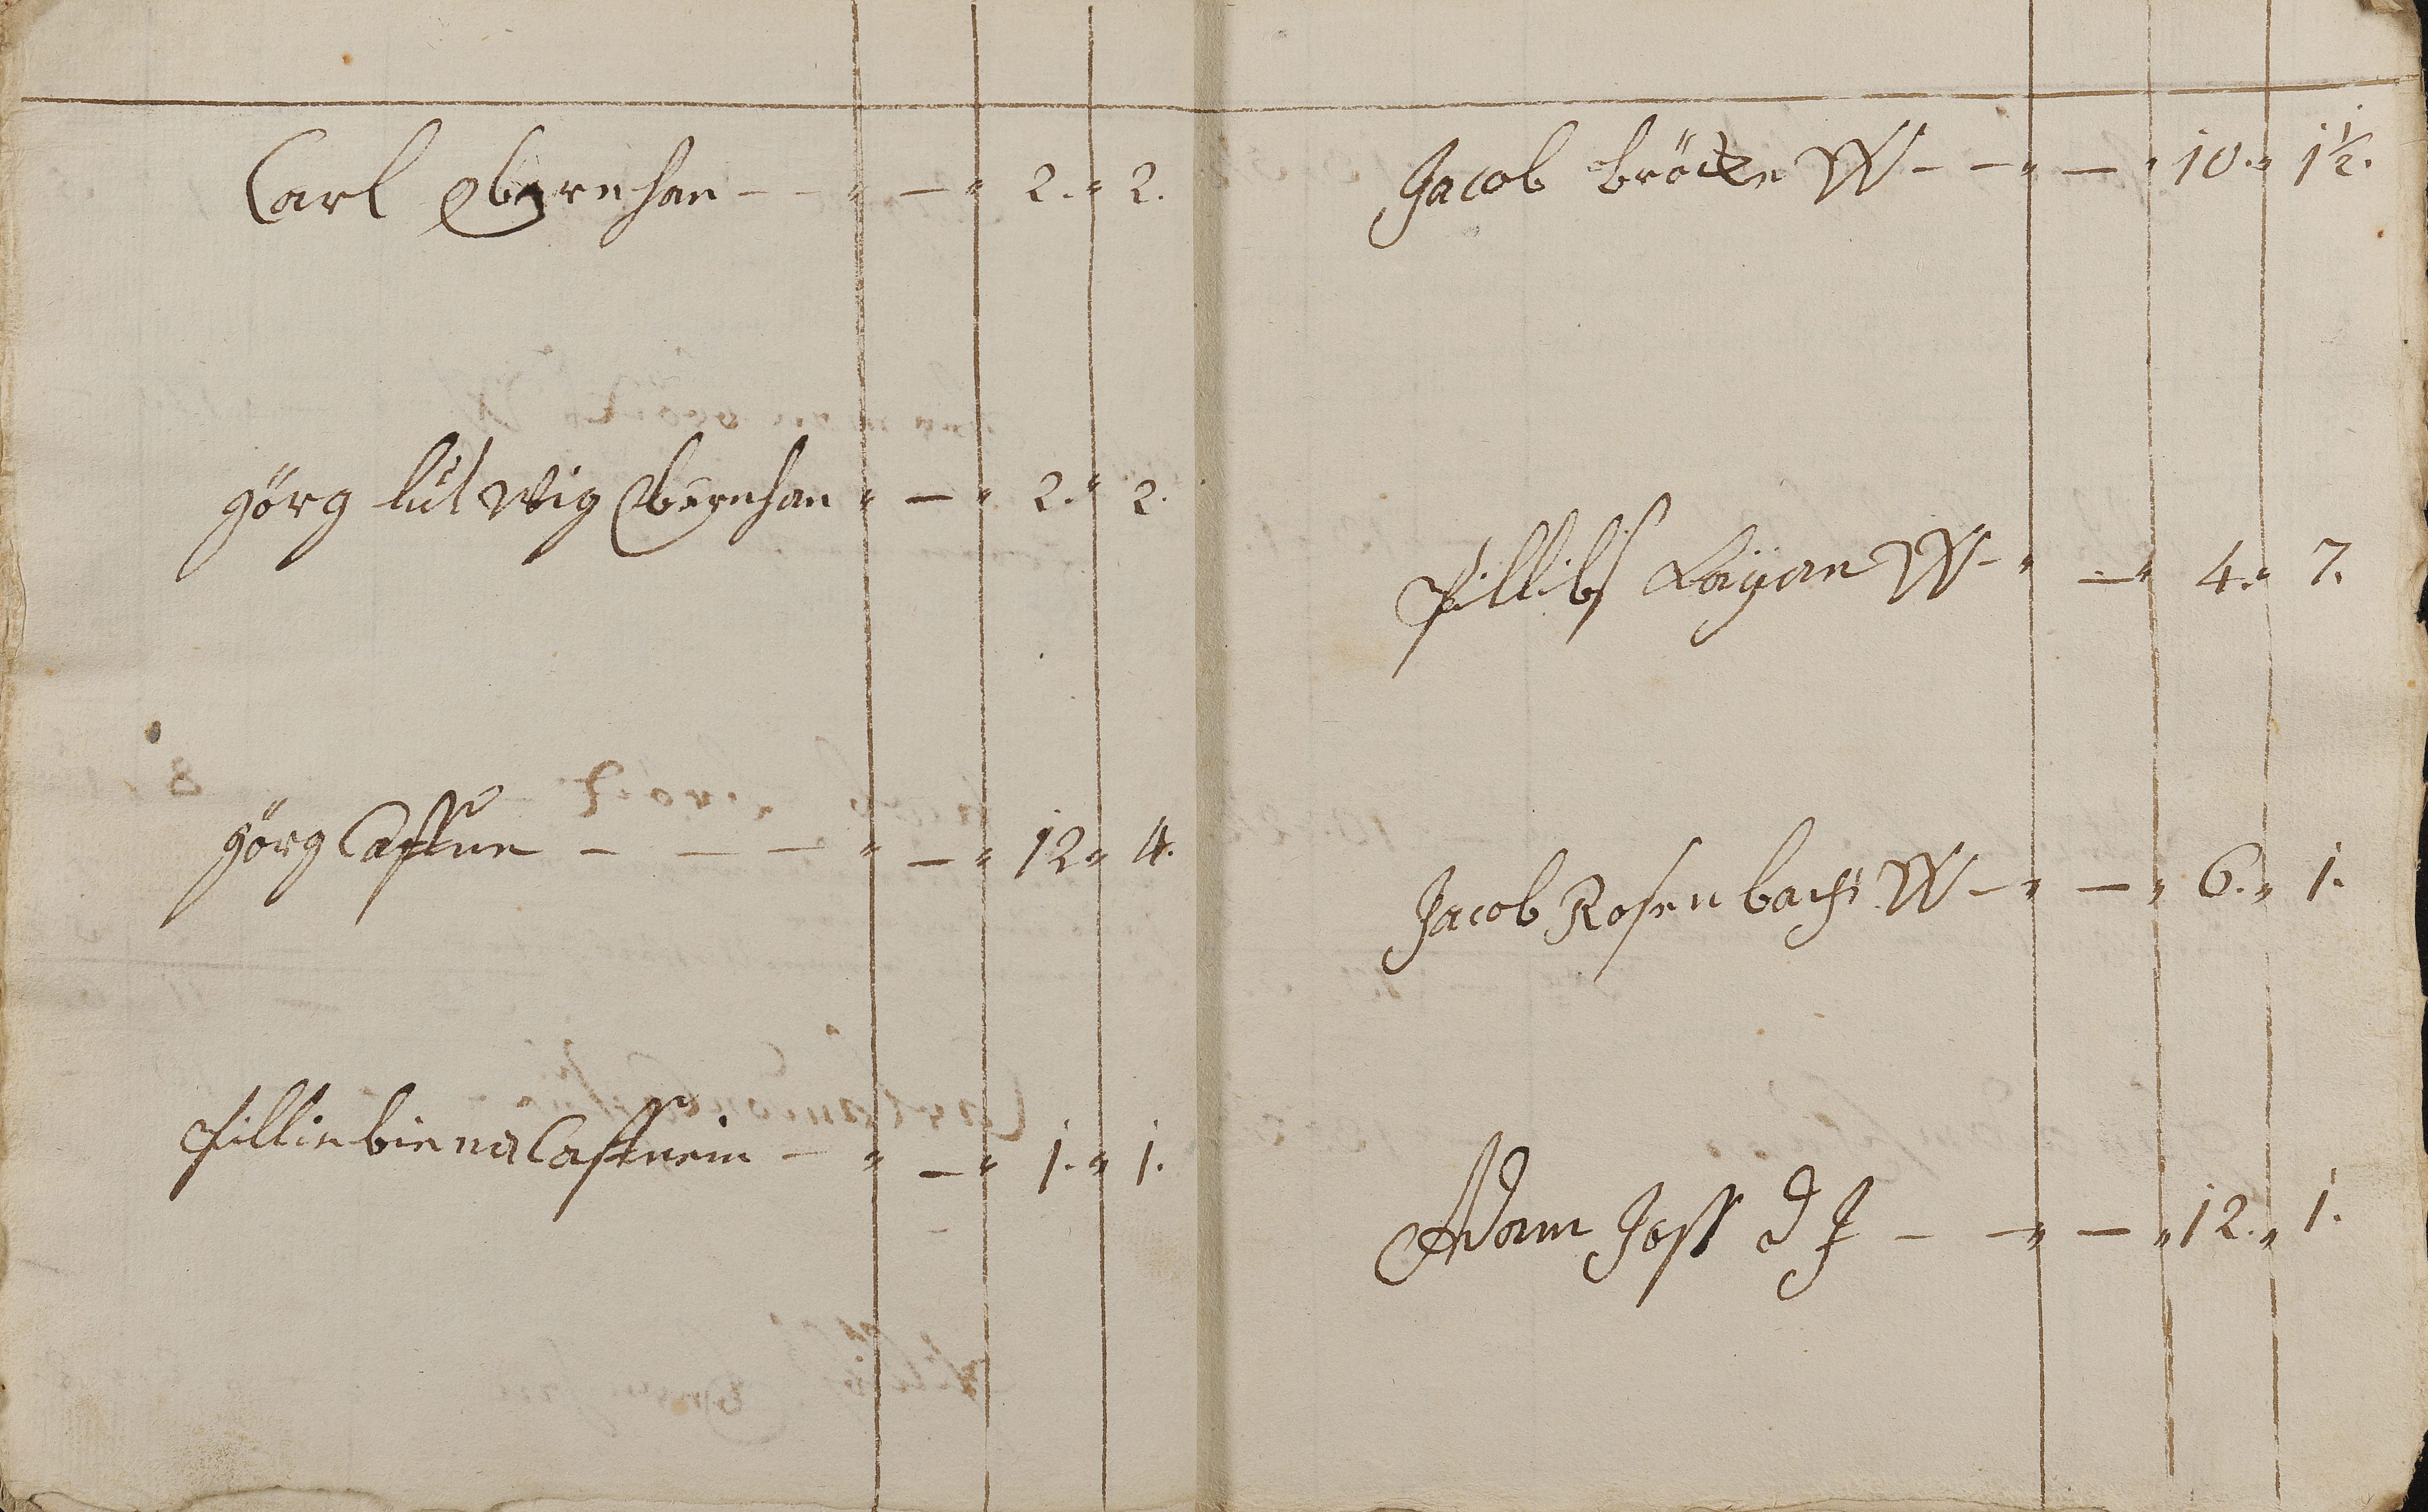 Carl Obernhan – – " – " 2. " 2.
görg lütwig Obernhan " – " 2. " 2.
görg Castun – – – " – " 12 " 4.
Pilliebiena Castnein – " – " 1. " 1.
Jacob bröcke W – – " – " 10. " 1½.
Pillibs Layan W – " – " 4. " 7.
Jacob Rosenbachs W – " – " 6. " 1.
Adam Jost d J – – " – " 12. " 1.